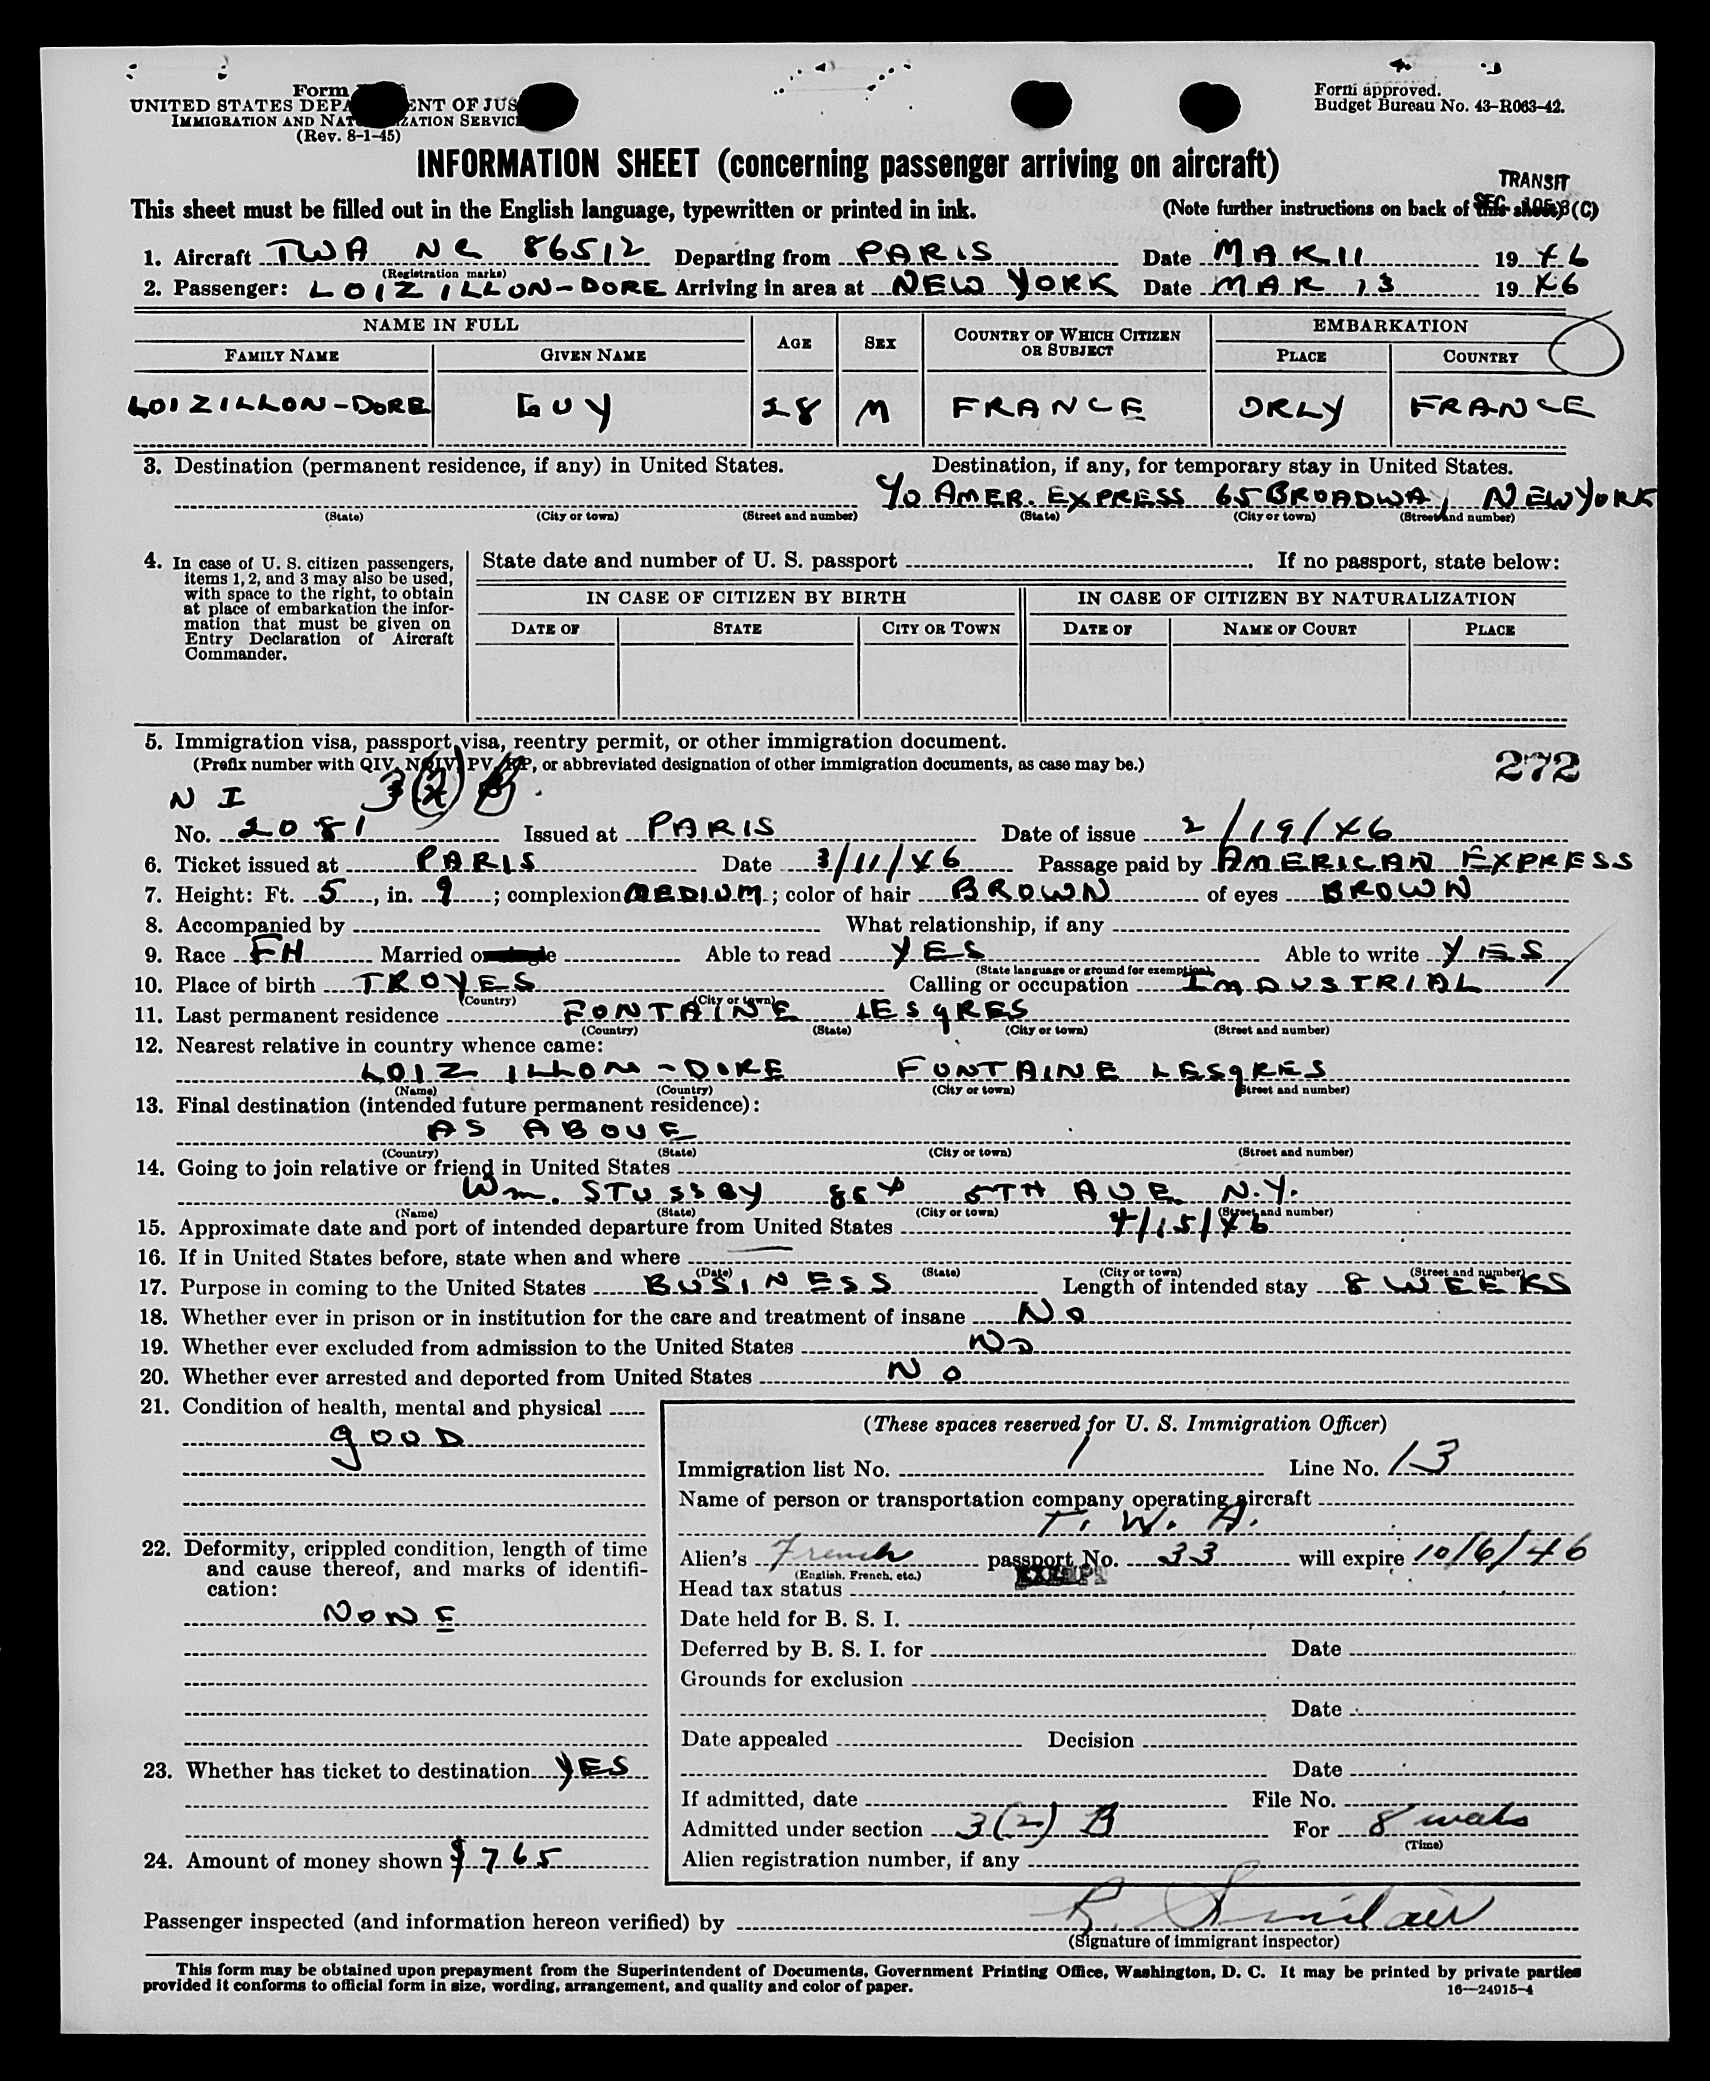 Form
UNITED STATES DEPA ENT OF JUS
IMMIGRATION AND NAT ZATION SERVIC
(Rev. 8-1-45)
Form approved.
Budget Bureau No. 43-R063-42.
INFORMATION SHEET (concerning passenger arriving on aircraft)
TRANSIT
This sheet must be filled out in the English language, typewritten or printed in ink. (Note further instructions on back of this sheet)
1. Aircraft TWA NC 86512 Departing from PARIS Date MAR 11 1946
(Registration marks)
2. Passenger: LOIZILLON-DORE Arriving in area at NEW YORK Date MAR 13 1946
NAME IN FULL AGE SEX COUNTRY OF WHICH CITIZEN OR SUBJECT EMBARKATION
FAMILY NAME GIVEN NAME PLACE COUNTRY
LOIZILLON-DORE GUY 28 M FRANCE ORLY FRANCE
3. Destination (permanent residence, if any) in United States. Destination, if any, for temporary stay in United States.
c/o AMER. EXPRESS 65 BROADWAY NEW YORK
(State) (City or town) (Street and number) (State) (City or town) (Street and number)
4. In case of U. S. citizen passengers, items 1, 2, and 3 may also be used, with space to the right, to obtain at place of embarkation the information that must be given on Entry Declaration of Aircraft Commander.
State date and number of U. S. passport . If no passport, state below:
IN CASE OF CITIZEN BY BIRTH IN CASE OF CITIZEN BY NATURALIZATION
DATE OF STATE CITY OR TOWN DATE OF NAME OF COURT PLACE
5. Immigration visa, passport visa, reentry permit, or other immigration document.
(Prefix number with QIV, NQIV, PV, RP, or abbreviated designation of other immigration documents, as case may be.)
272
N I 3(2) B
No. 2081 Issued at PARIS Date of issue 2/19/46
6. Ticket issued at PARIS Date 3/11/46 Passage paid by AMERICAN EXPRESS
7. Height: Ft. 5, in. 9; complexion MEDIUM; color of hair BROWN of eyes BROWN
8. Accompanied by What relationship, if any
9. Race FH Married or single Able to read YES Able to write YES
(State language or ground for exemption)
10. Place of birth TROYES Calling or occupation INDUSTRIAL
(Country) (City or town)
11. Last permanent residence FONTAINE LES GRES
(Country) (State) (City or town) (Street and number)
12. Nearest relative in country whence came:
LOIZILLON-DORE FONTAINE LES GRES
(Name) (Country) (City or town) (Street and number)
13. Final destination (intended future permanent residence):
AS ABOVE
(Country) (State) (City or town) (Street and number)
14. Going to join relative or friend in United States
Wm. STUSSBY 5TH AVE N.Y.
(Name) (State) (City or town) (Street and number)
15. Approximate date and port of intended departure from United States 4/15/46
16. If in United States before, state when and where
(Date) (State) (City or town) (Street and number)
17. Purpose in coming to the United States BUSINESS Length of intended stay 8 WEEKS
18. Whether ever in prison or in institution for the care and treatment of insane NO
19. Whether ever excluded from admission to the United States NO
20. Whether ever arrested and deported from United States NO
21. Condition of health, mental and physical
GOOD
22. Deformity, crippled condition, length of time and cause thereof, and marks of identification:
NONE
23. Whether has ticket to destination YES
24. Amount of money shown $765
(These spaces reserved for U. S. Immigration Officer)
Immigration list No. 1 Line No. 13
Name of person or transportation company operating aircraft
T. W. A.
Alien's French passport No. 33 will expire 10/6/46
(English, French, etc.)
Head tax status EXEMPT
Date held for B. S. I.
Deferred by B. S. I. for Date
Grounds for exclusion
Date
Date appealed Decision
Date
If admitted, date File No.
Admitted under section 3(2) B For 8 weeks
(Time)
Alien registration number, if any
Passenger inspected (and information hereon verified) by R. Sinclair
(Signature of immigrant inspector)
This form may be obtained upon prepayment from the Superintendent of Documents, Government Printing Office, Washington, D. C. It may be printed by private parties
provided it conforms to official form in size, wording, arrangement, and quality and color of paper.
16—24915-4